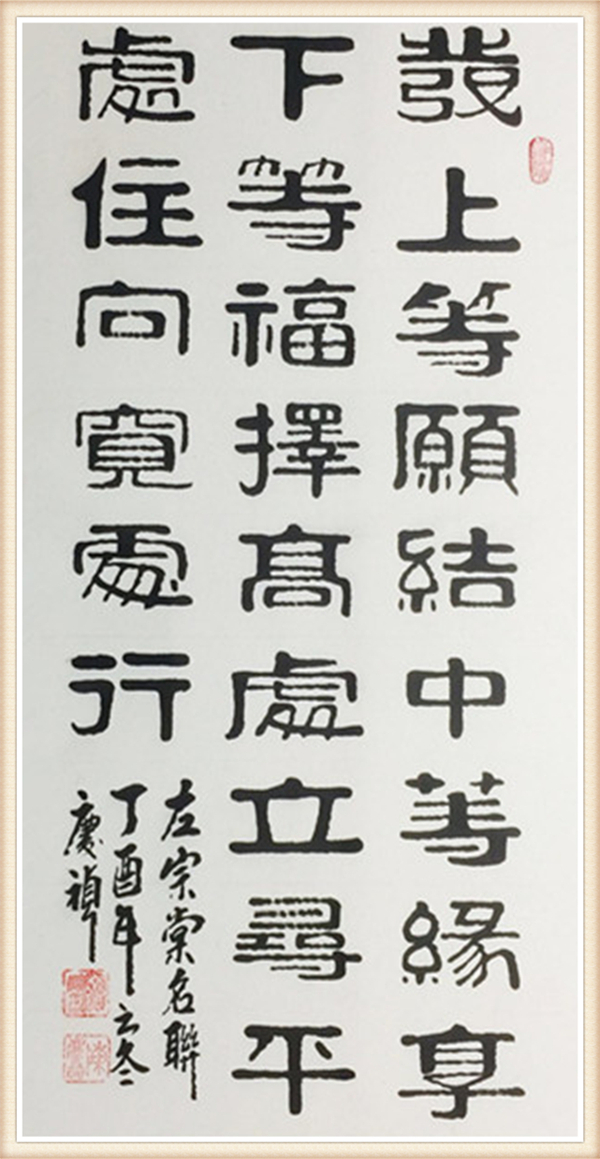 發上等願結中等緣享
下等福擇髙處立尋平
處住向寬處行
左宗棠名聯
丁酉年之冬
慶禎